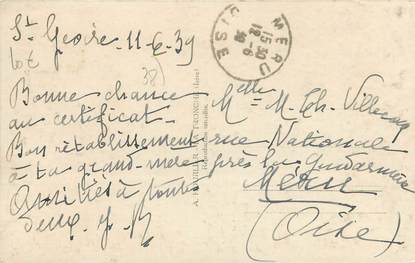 St Geoire 11-6-39
Bonne chance
au certificat.
Bon rétablissement
à ta grand-mère
Amitiés à toutes
deux.
MERU
15 30
12 -6
39
OISE
Melle M. Th.
rue Nationale
près la Gendarmerie
Méru
(Oise)